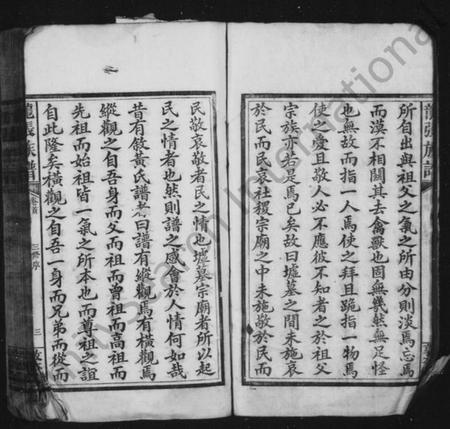 所自出與祖父之氣之所由分則淡焉忘焉
而漠不相關其去禽獸也固無幾然無足怪
也無故而指一人焉使之拜且跪指一物焉
使之愛且敬人必不應彼不知者之於祖父
宗族亦若是焉已矣故曰墟墓之間未施哀
於民而民哀社稷宗廟之中未施敬於民而
民敬哀敬者民之情也墟墓宗廟者所以起
民之情者也然則譜之感會於人情何如哉
昔有敘黃氏譜者曰譜有縱觀焉有橫觀焉
縱觀之自吾身而父而祖而曾祖而高祖而
先祖而始祖皆一氣之所本也而尊祖之誼
自此隆矣橫觀之自吾一身而兄弟而從而
龍張族譜
卷首
三修序
三
龍張族譜